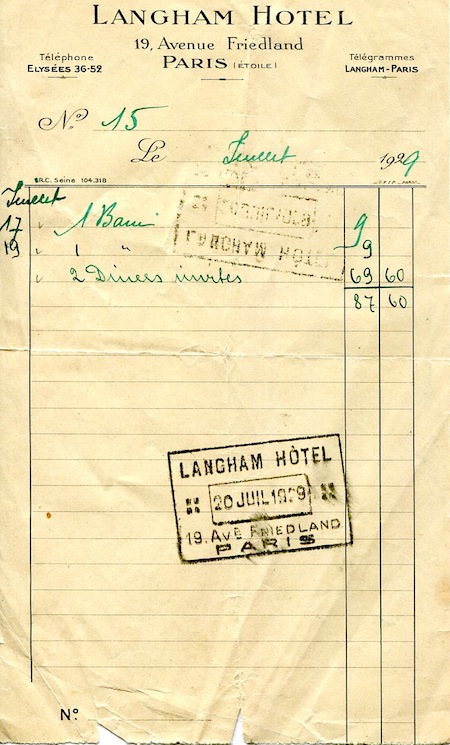 LANGHAM HOTEL
19, Avenue Friedland
Téléphone
ELYSÉES 36-52
PARIS (ÉTOILE)
Télégrammes
LANGHAM-PARIS
No 15
Le Juillet 1929
R.C. Seine 104.318
Juillet
17 1 Bain 9
19 1 " 9
2 Diners invités 69 60
87 60
LANGHAM HÔTEL
LANGHAM HÔTEL
20 JUIL 1929
19, Ave FRIEDLAND
PARIS
No.